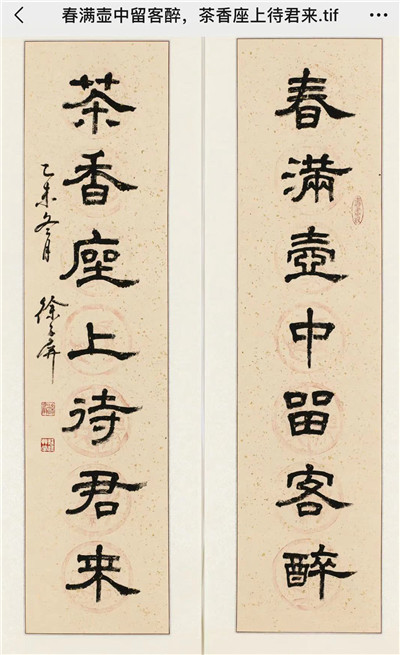 春满壶中留客醉，茶香座上待君来.tif
春满壶中留客醉
茶香座上待君来
乙未冬月
徐子屏